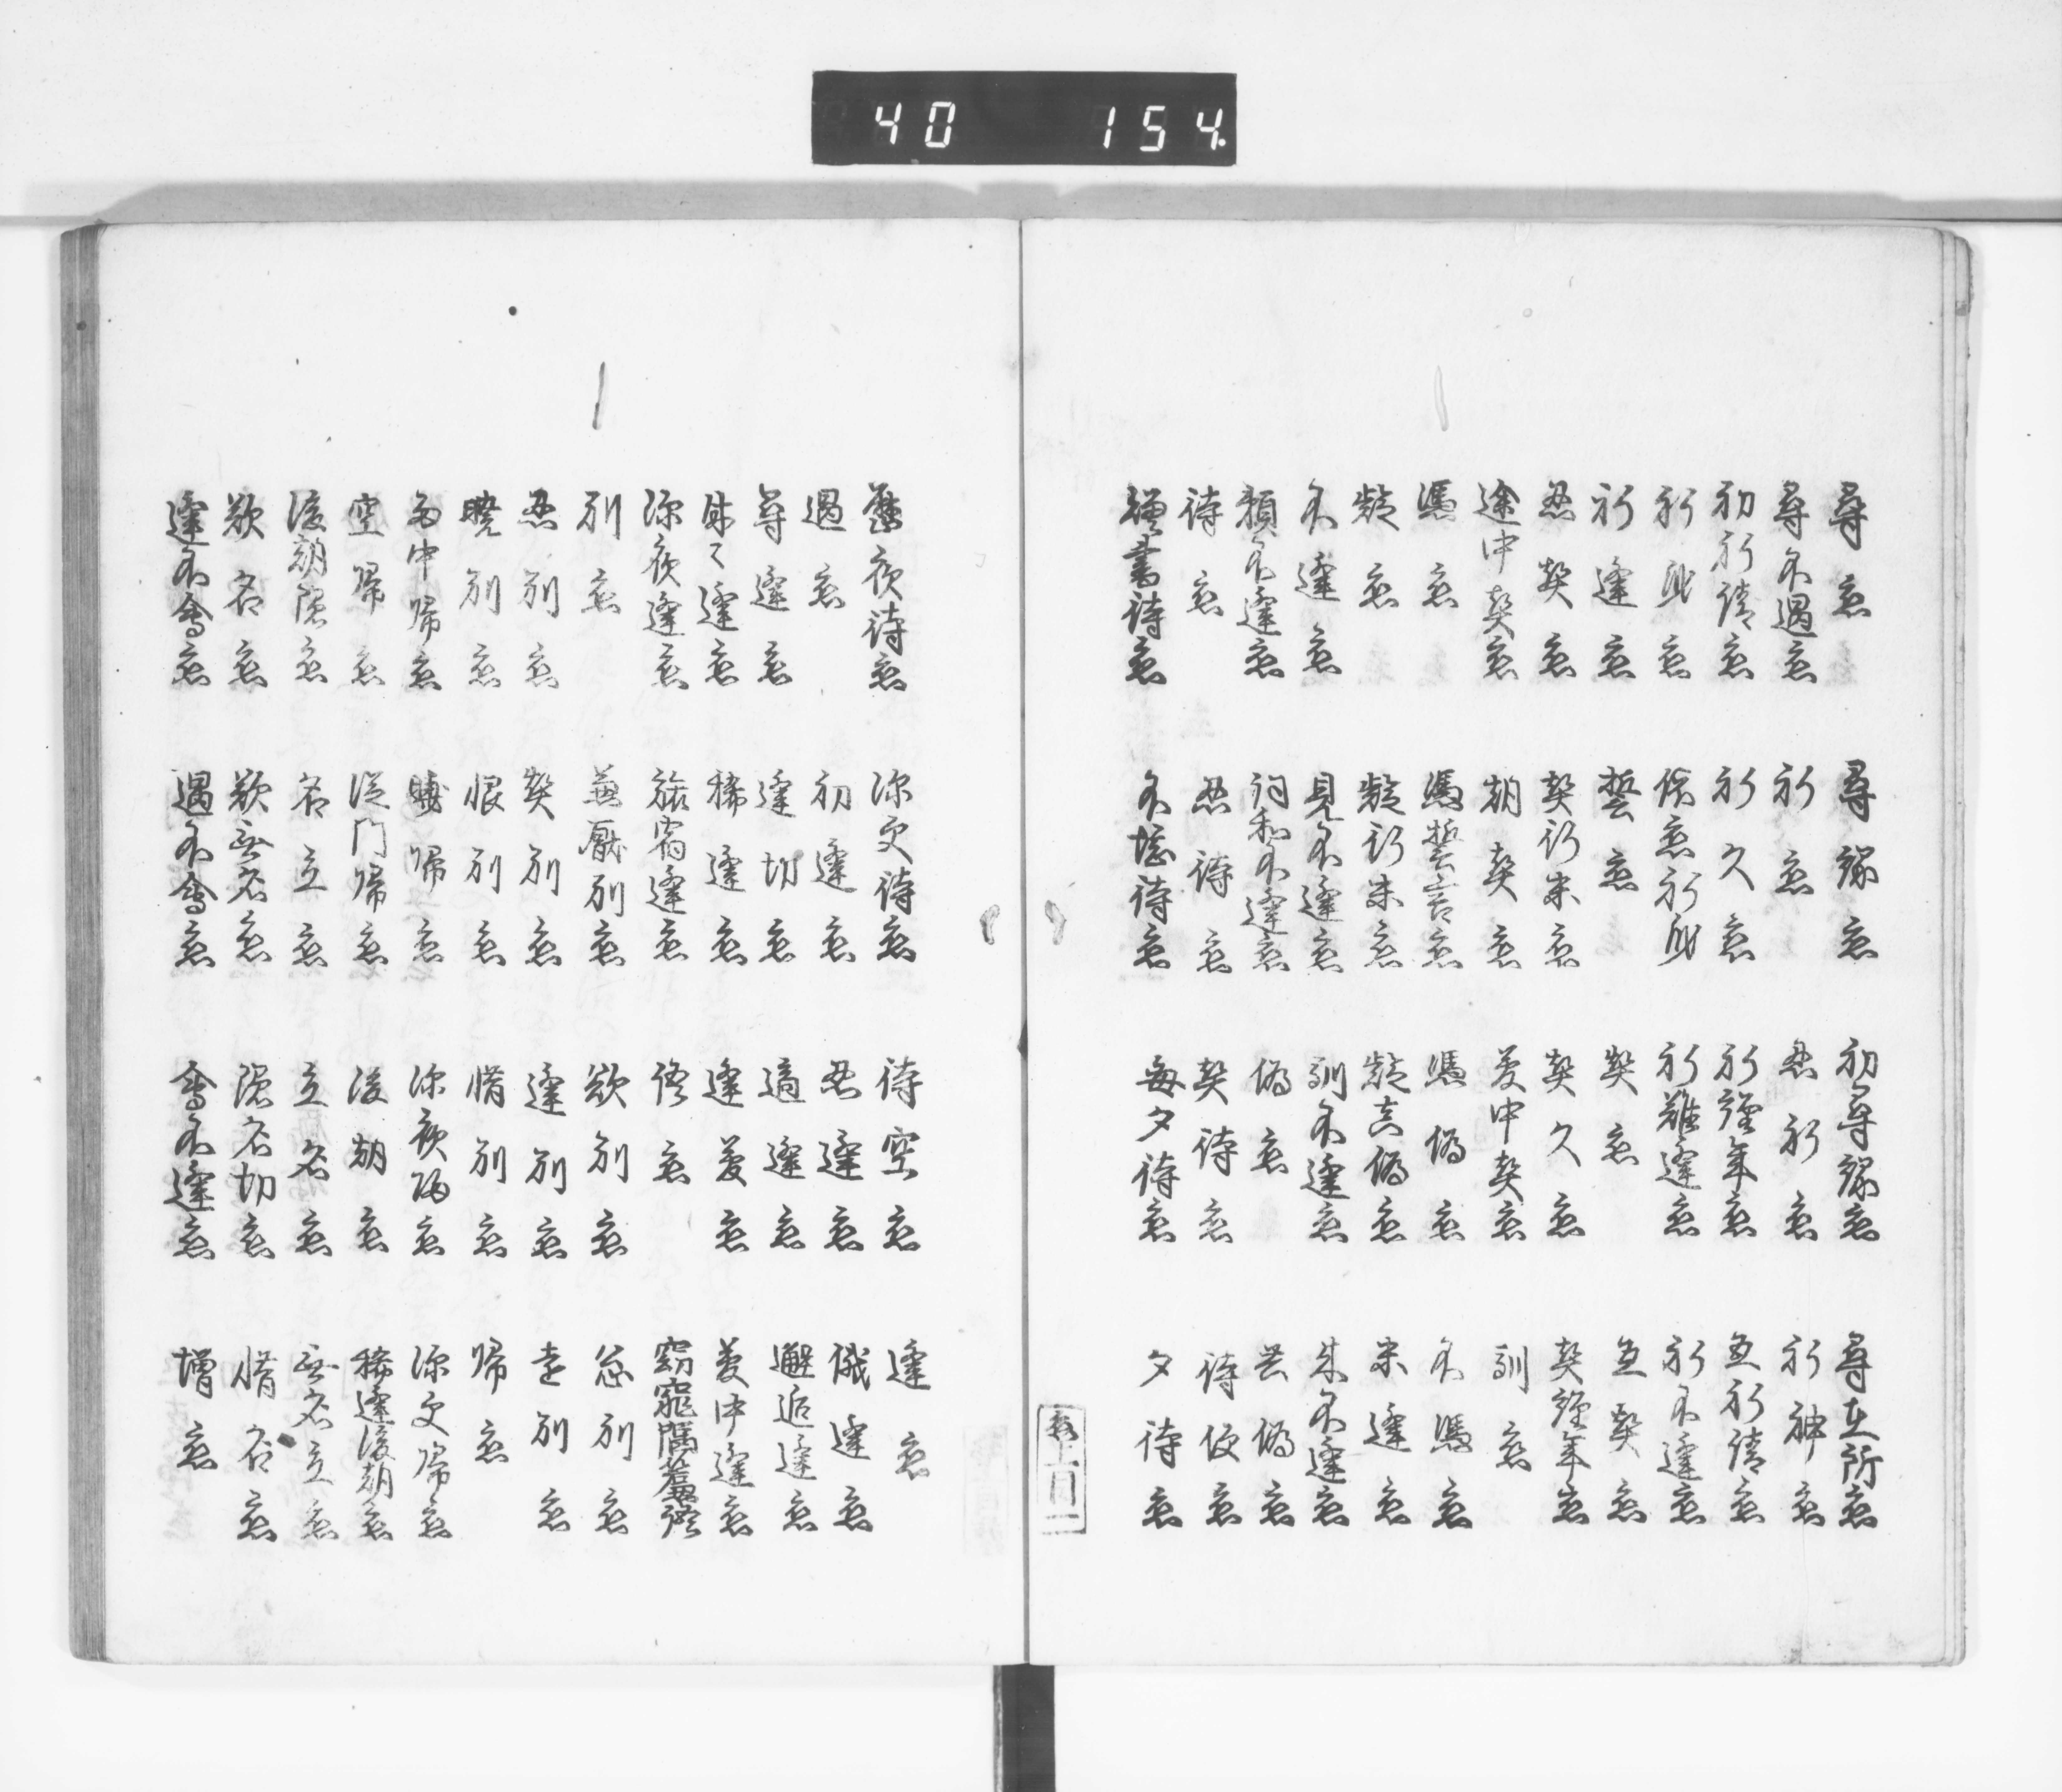 40 154
尋恋 尋縁恋 初尋縁恋 尋在所恋
尋不遇恋 祈恋 忍祈恋 祈神恋
初祈請恋 祈久恋 祈経年恋 互祈請恋
祈身恋 依恋祈身 祈難逢恋 祈不逢恋
祈逢恋 誓恋 契恋 互契恋
忍契恋 契行末恋 契久恋 契経年恋
途中契恋 朝契恋 夢中契恋 馴恋
憑恋 憑誓言恋 憑偽恋 不憑恋
疑恋 疑行末恋 疑真偽恋 未逢恋
不逢恋 見不逢恋 馴不逢恋 来不逢恋
不逢恋 詞和不逢恋 偽恋 共偽恋
待恋 忍待恋 契待恋 待便恋
書待恋 不堪待恋 毎夕待恋 夕待恋
夜待恋 深更待恋 待空恋 逢恋
遇恋 初逢恋 忍逢恋 俄逢恋
尋逢恋 逢切恋 適逢恋 邂逅逢恋
逢恋 稀逢恋 逢夢恋 夢中逢恋
深夜逢恋 旅宿逢恋 恋 窈窕隔
別恋 兼厭別恋 欲別恋 忽別恋
忍別恋 契別恋 逢別恋 別恋
暁別恋 恨別恋 惜別恋 帰恋
雨中帰恋 暁帰恋 深夜帰恋 深更帰恋
空帰恋 従門帰恋 後朝恋 稀逢後朝恋
後朝隠恋 名立恋 立名恋 無名立恋
歎名恋 歎無名恋 隠名切恋 惜名恋
逢不会恋 遇不会恋 会不逢恋 増恋